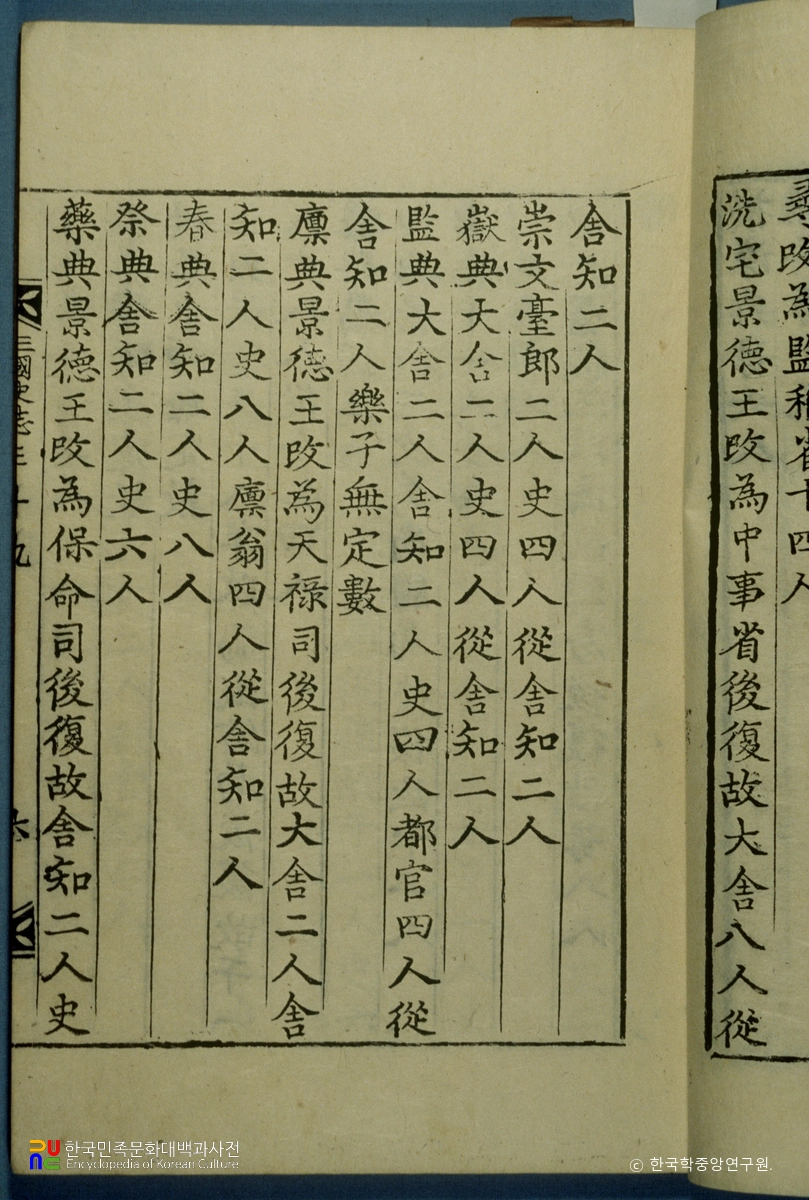 攺為監
十四人
洗宅景德王攺為中事省後復故大舍八人從
舍知二人
崇文臺郎二人史四人從舍知二人
嶽典大舍二人史四人從舍知二人
監典大舍二人舍知二人史四人都官四人從
舍知二人樂子無定數
廪典景德王攺為天祿司後復故大舍二人舍
知二人史八人廪翁四人從舍知二人
春典舍知二人史八人
祭典舍知二人史六人
藥典景德王攺為保命司後復故舍知二人史
三國史志
十九
六
한국민족문화대백과사전
Encyclopedia of Korean Culture
© 한국학중앙연구원.